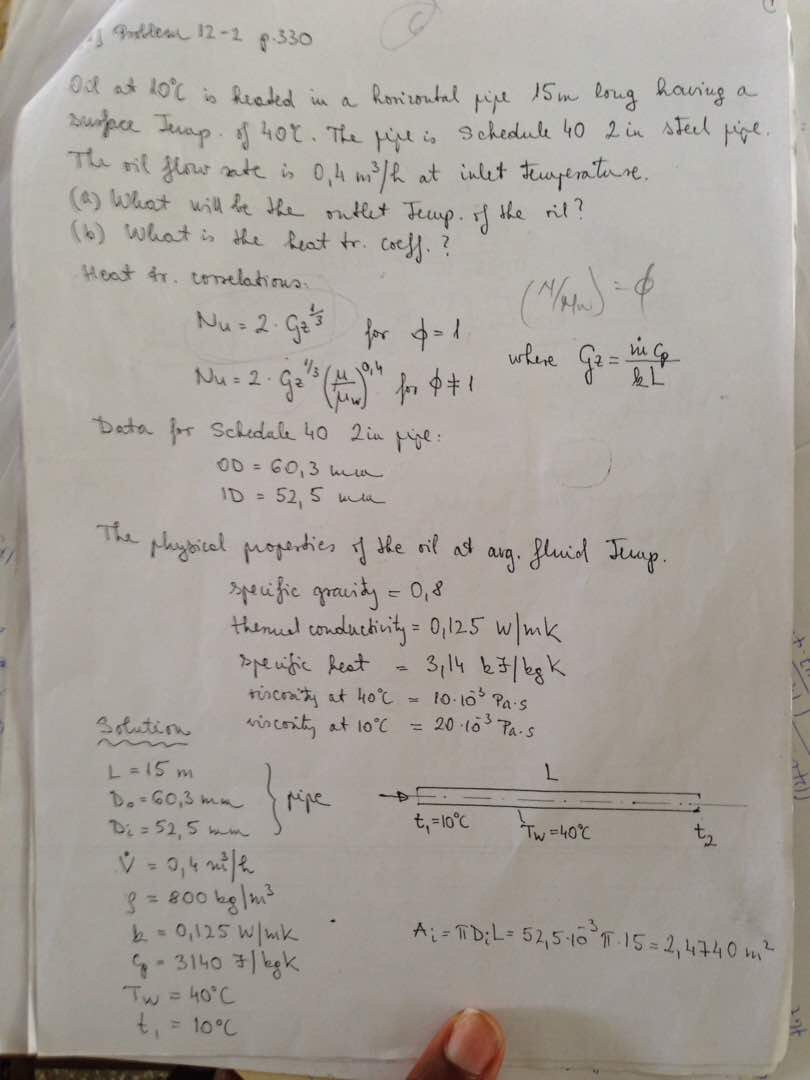 Problem 12-2 p.330
Oil at 10°C is heated in a horizontal pipe 15m long having a
surface Temp. of 40°C. The pipe is Schedule 40 2in steel pipe.
The oil flow rate is 0,4 m³/h at inlet temperature.
(a) What will be the outlet Temp. of the oil?
(b) What is the heat tr. coeff.?
Heat tr. correlations:
(μ/μw) = ϕ
Nu = 2 · Gz^1/3 for ϕ = 1
where Gz = ṁ cp / k L
Nu = 2 · Gz^1/3 (μ/μw)^0,4 for ϕ ≠ 1
Data for Schedule 40 2in pipe:
OD = 60,3 mm
ID = 52,5 mm
The physical properties of the oil at avg. fluid Temp.
specific gravity = 0,8
thermal conductivity = 0,125 W/mK
specific heat = 3,14 kJ/kgK
viscosity at 40°C = 10·10⁻³ Pa·s
viscosity at 10°C = 20·10⁻³ Pa·s
Solution
L = 15 m
Do = 60,3 mm
Di = 52,5 mm
pipe
L
t₁=10°C
Tw=40°C
t₂
V̇ = 0,4 m³/h
ρ = 800 kg/m³
k = 0,125 W/mK
Cp = 3140 J/kgK
Tw = 40°C
t₁ = 10°C
Ai = πDiL = 52,5·10⁻³ π·15 = 2,4740 m²